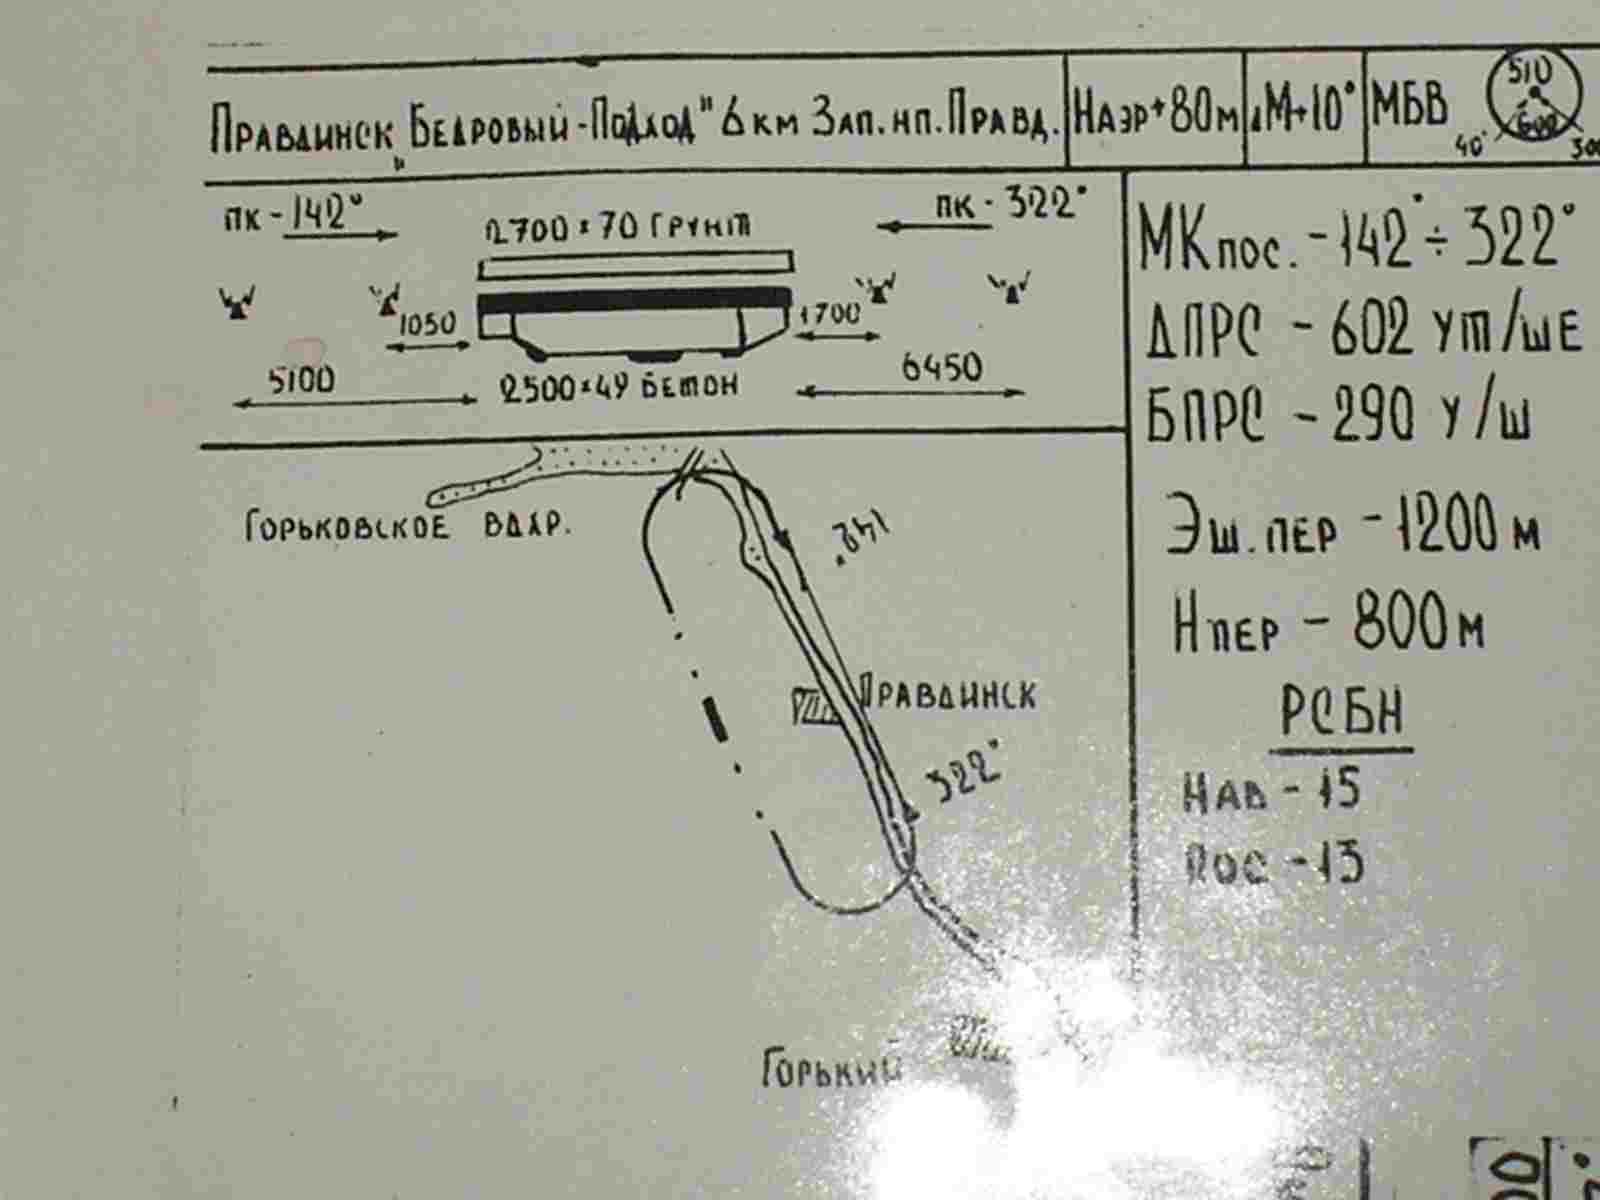 Правдинск „Бедровый-Подход" 6 км Зап. нп. Правд.
Наэр+80м
ΔМ+10°
МБВ
510
600
40°
300
ПК-142°
2700×70 ГРУНТ
ПК-322°
1050
1700
5100
2500×49 БЕТОН
6450
МКпос. -142°÷322°
ДПРС - 602 УТ/ШЕ
БПРС - 290 У/Ш
Эш.пер -1200 м
Нпер - 800 м
РСБН
Нав - 15
Пос - 13
Горьковское вдхр.
142°
Правдинск
322°
Горький